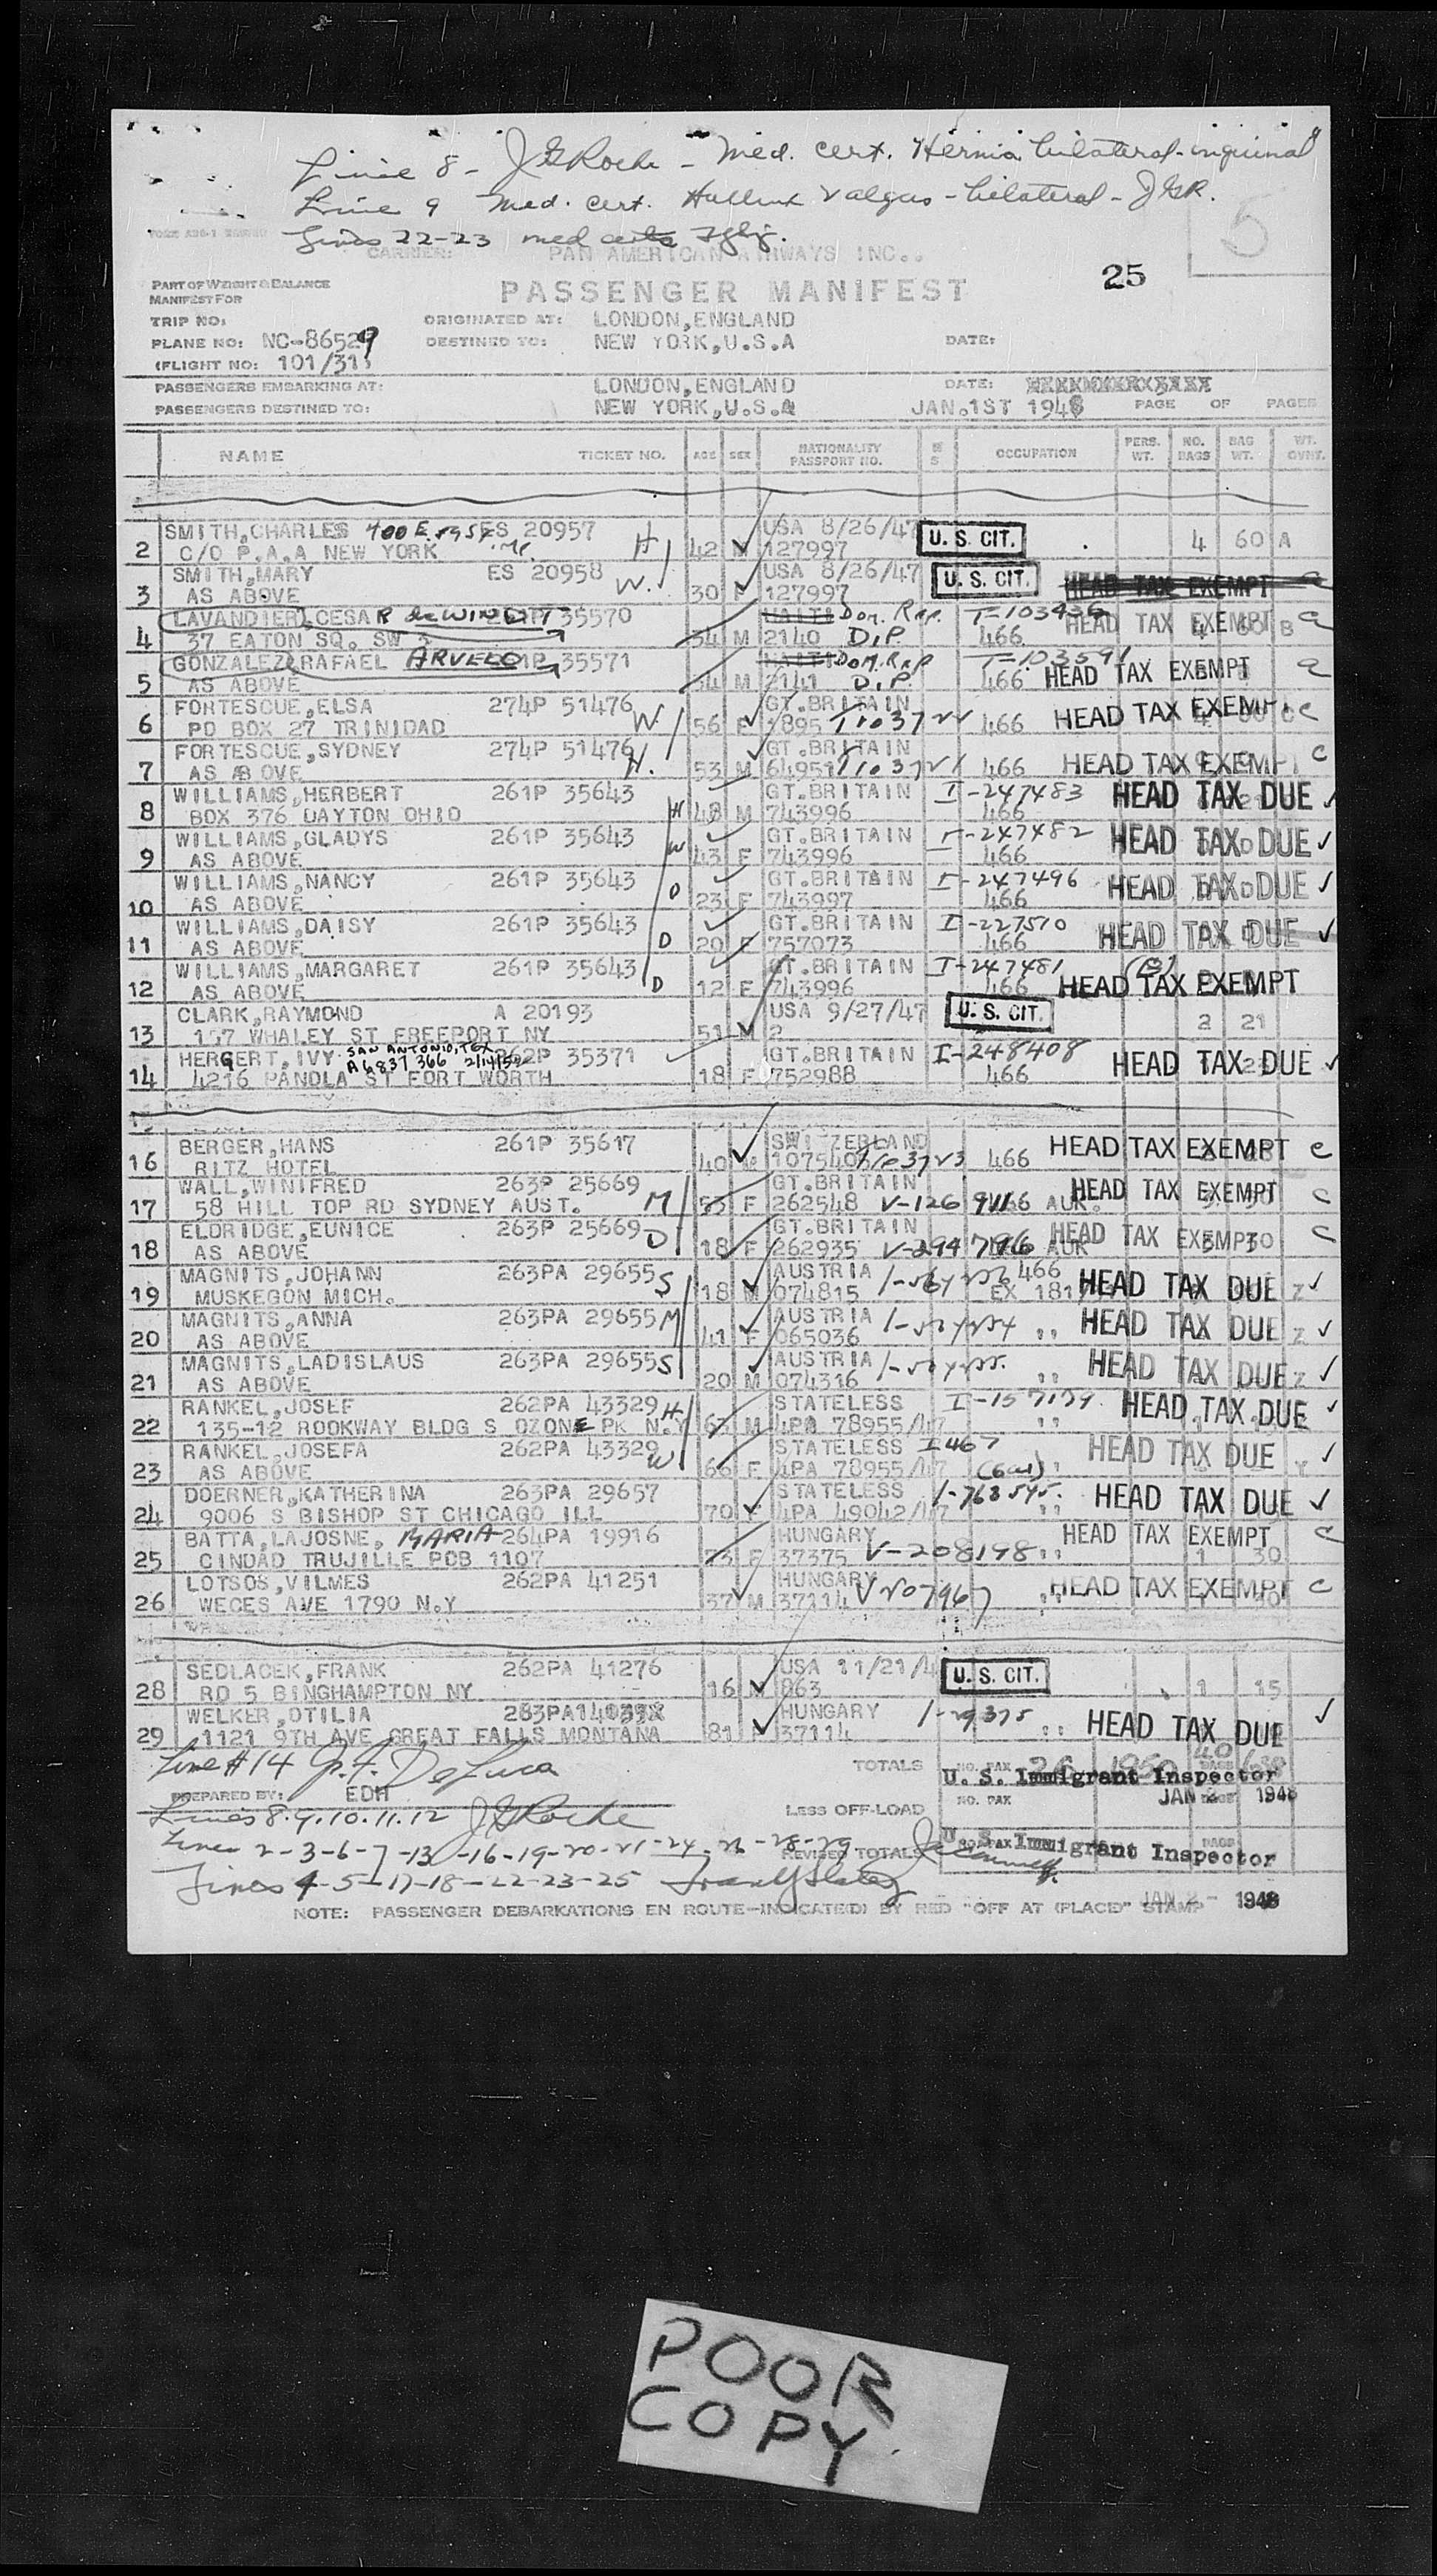 Line 8 - J G Roche - Med. cert. Hernia bilateral-inguinal
Line 9 Med. cert. Hallux Valgus - bilateral - J G R.
Lines 22-23 med certs
5
CARRIER: PAN AMERICAN AIRWAYS INC.
25
PART OF WEIGHT & BALANCE
MANIFEST FOR
PASSENGER MANIFEST
TRIP NO: ORIGINATED AT: LONDON,ENGLAND
PLANE NO: NC-86529 DESTINED TO: NEW YORK,U.S.A DATE:
(FLIGHT NO: 101/31
PASSENGERS EMBARKING AT: LONDON,ENGLAND DATE:
PASSENGERS DESTINED TO: NEW YORK,U.S.A JAN.1ST 1948 PAGE OF PAGES
NAME TICKET NO. AGE SEX NATIONALITY PASSPORT NO. M S OCCUPATION PERS. WT. NO. BAGS BAG WT. WT. OVNT.
SMITH,CHARLES 400 E. ES 20957 H USA 8/26/47 U. S. CIT.
2 C/O P.A.A NEW YORK 42 M 127997 4 60 A
SMITH,MARY ES 20958 W. USA 8/26/47 U. S. CIT. HEAD TAX EXEMPT
3 AS ABOVE 30 F 127997
LAVANDIER, CESAR de WINDT 35570 HAITI Dom. Rep. T-103436 HEAD TAX EXEMPT
4 37 EATON SQ. SW 34 M 2140 DIP. 466 B
GONZALEZ, RAFAEL ARVELO 35571 HAITI Dom. Rep T-103591 HEAD TAX EXEMPT
5 AS ABOVE 34 M 2141 DIP 466
FORTESCUE,ELSA 274P 51476 W GT.BRITAIN HEAD TAX EXEMPT C
6 PO BOX 27 TRINIDAD 56 F 1895 466
FORTESCUE,SYDNEY 274P 51476 H. GT.BRITAIN HEAD TAX EXEMPT C
7 AS ABOVE 53 M 64951 466
WILLIAMS,HERBERT 261P 35643 H GT.BRITAIN I-247483 HEAD TAX DUE
8 BOX 376 DAYTON OHIO 48 M 743996 466
WILLIAMS,GLADYS 261P 35643 W GT.BRITAIN I-247482 HEAD TAX DUE
9 AS ABOVE 43 F 743996 466
WILLIAMS,NANCY 261P 35643 D GT.BRITAIN I-247496 HEAD TAX DUE
10 AS ABOVE 23 F 743997 466
WILLIAMS,DAISY 261P 35643 D GT.BRITAIN I-227570 HEAD TAX DUE
11 AS ABOVE 20 F 757073 466
WILLIAMS,MARGARET 261P 35643 D GT.BRITAIN I-247481 (B) HEAD TAX EXEMPT
12 AS ABOVE 12 F 743996 466
CLARK,RAYMOND A 20193 USA 9/27/47 U. S. CIT.
13 157 WHALEY ST FREEPORT NY 51 M 2 2 21
HERGERT,IVY SAN ANTONIO, TEX 262P 35371 GT.BRITAIN I-248408 HEAD TAX DUE
A6837 366 2/14/52
14 4216 PANOLA ST FORT WORTH 18 F 752988 466
BERGER,HANS 261P 35617 SWITZERLAND HEAD TAX EXEMPT C
16 RITZ HOTEL 40 M 107540 466
WALL,WINIFRED 263P 25669 M GT.BRITAIN HEAD TAX EXEMPT C
17 58 HILL TOP RD SYDNEY AUST. 53 F 262548 V-126 AUK.
ELDRIDGE,EUNICE 263P 25669 D GT.BRITAIN HEAD TAX EXEMPT C
18 AS ABOVE 18 F 262935 V-294796 AUK 30
MAGNITS,JOHANN 263PA 29655 S AUSTRIA 466 HEAD TAX DUE Z
19 MUSKEGON MICH. 18 M 074815 EX 181
MAGNITS,ANNA 263PA 29655 M AUSTRIA HEAD TAX DUE Z
20 AS ABOVE 41 F 065036
MAGNITS,LADISLAUS 263PA 29655 S AUSTRIA HEAD TAX DUE Z
21 AS ABOVE 20 M 074316
RANKEL,JOSEF 262PA 43329 H STATELESS I-157139 HEAD TAX DUE
22 135-12 ROOKWAY BLDG S OZONE PK N.Y 67 M 4PA 78955/47
RANKEL,JOSEFA 262PA 43329 W STATELESS I-467 HEAD TAX DUE
23 AS ABOVE 66 F 4PA 78955/47 Y
DOERNER,KATHERINA 263PA 29657 STATELESS I-763545. HEAD TAX DUE
24 9006 S BISHOP ST CHICAGO ILL 70 F 4PA 49042/47
BATTA,LAJOSNE, MARIA 264PA 19916 HUNGARY HEAD TAX EXEMPT C
25 CINDAD TRUJILLE POB 1107 73 F 37375 V-208198 1 30
LOTSOS,VILMES 262PA 41251 HUNGARY HEAD TAX EXEMPT C
26 WECES AVE 1790 N.Y 37 M 37114 V 207967
SEDLACEK,FRANK 262PA 41276 USA 11/21/4 U. S. CIT.
28 RD 5 BINGHAMPTON NY 16 M 863 1 15
WELKER,OTILIA 283PA HUNGARY HEAD TAX DUE
29 1121 9TH AVE GREAT FALLS MONTANA 81 F 37114
Line #14 J. F. DeLuca TOTALS NO. PAX 26 1950 40
U. S. Immigrant Inspector
PREPARED BY: EDH JAN 2 1948
NO. PAX
Lines 8.9.10.11.12 J G Roche LESS OFF-LOAD
Lines 2-3-6-7-13-16-19-20-21-24-26-28-29 REVISED TOTALS U. S. Immigrant Inspector
Lines 4-5-17-18-22-23-25
JAN 2 - 1948
NOTE: PASSENGER DEBARKATIONS EN ROUTE-INDICATE(D) BY RED "OFF AT (PLACE)" STAMP
POOR
COPY